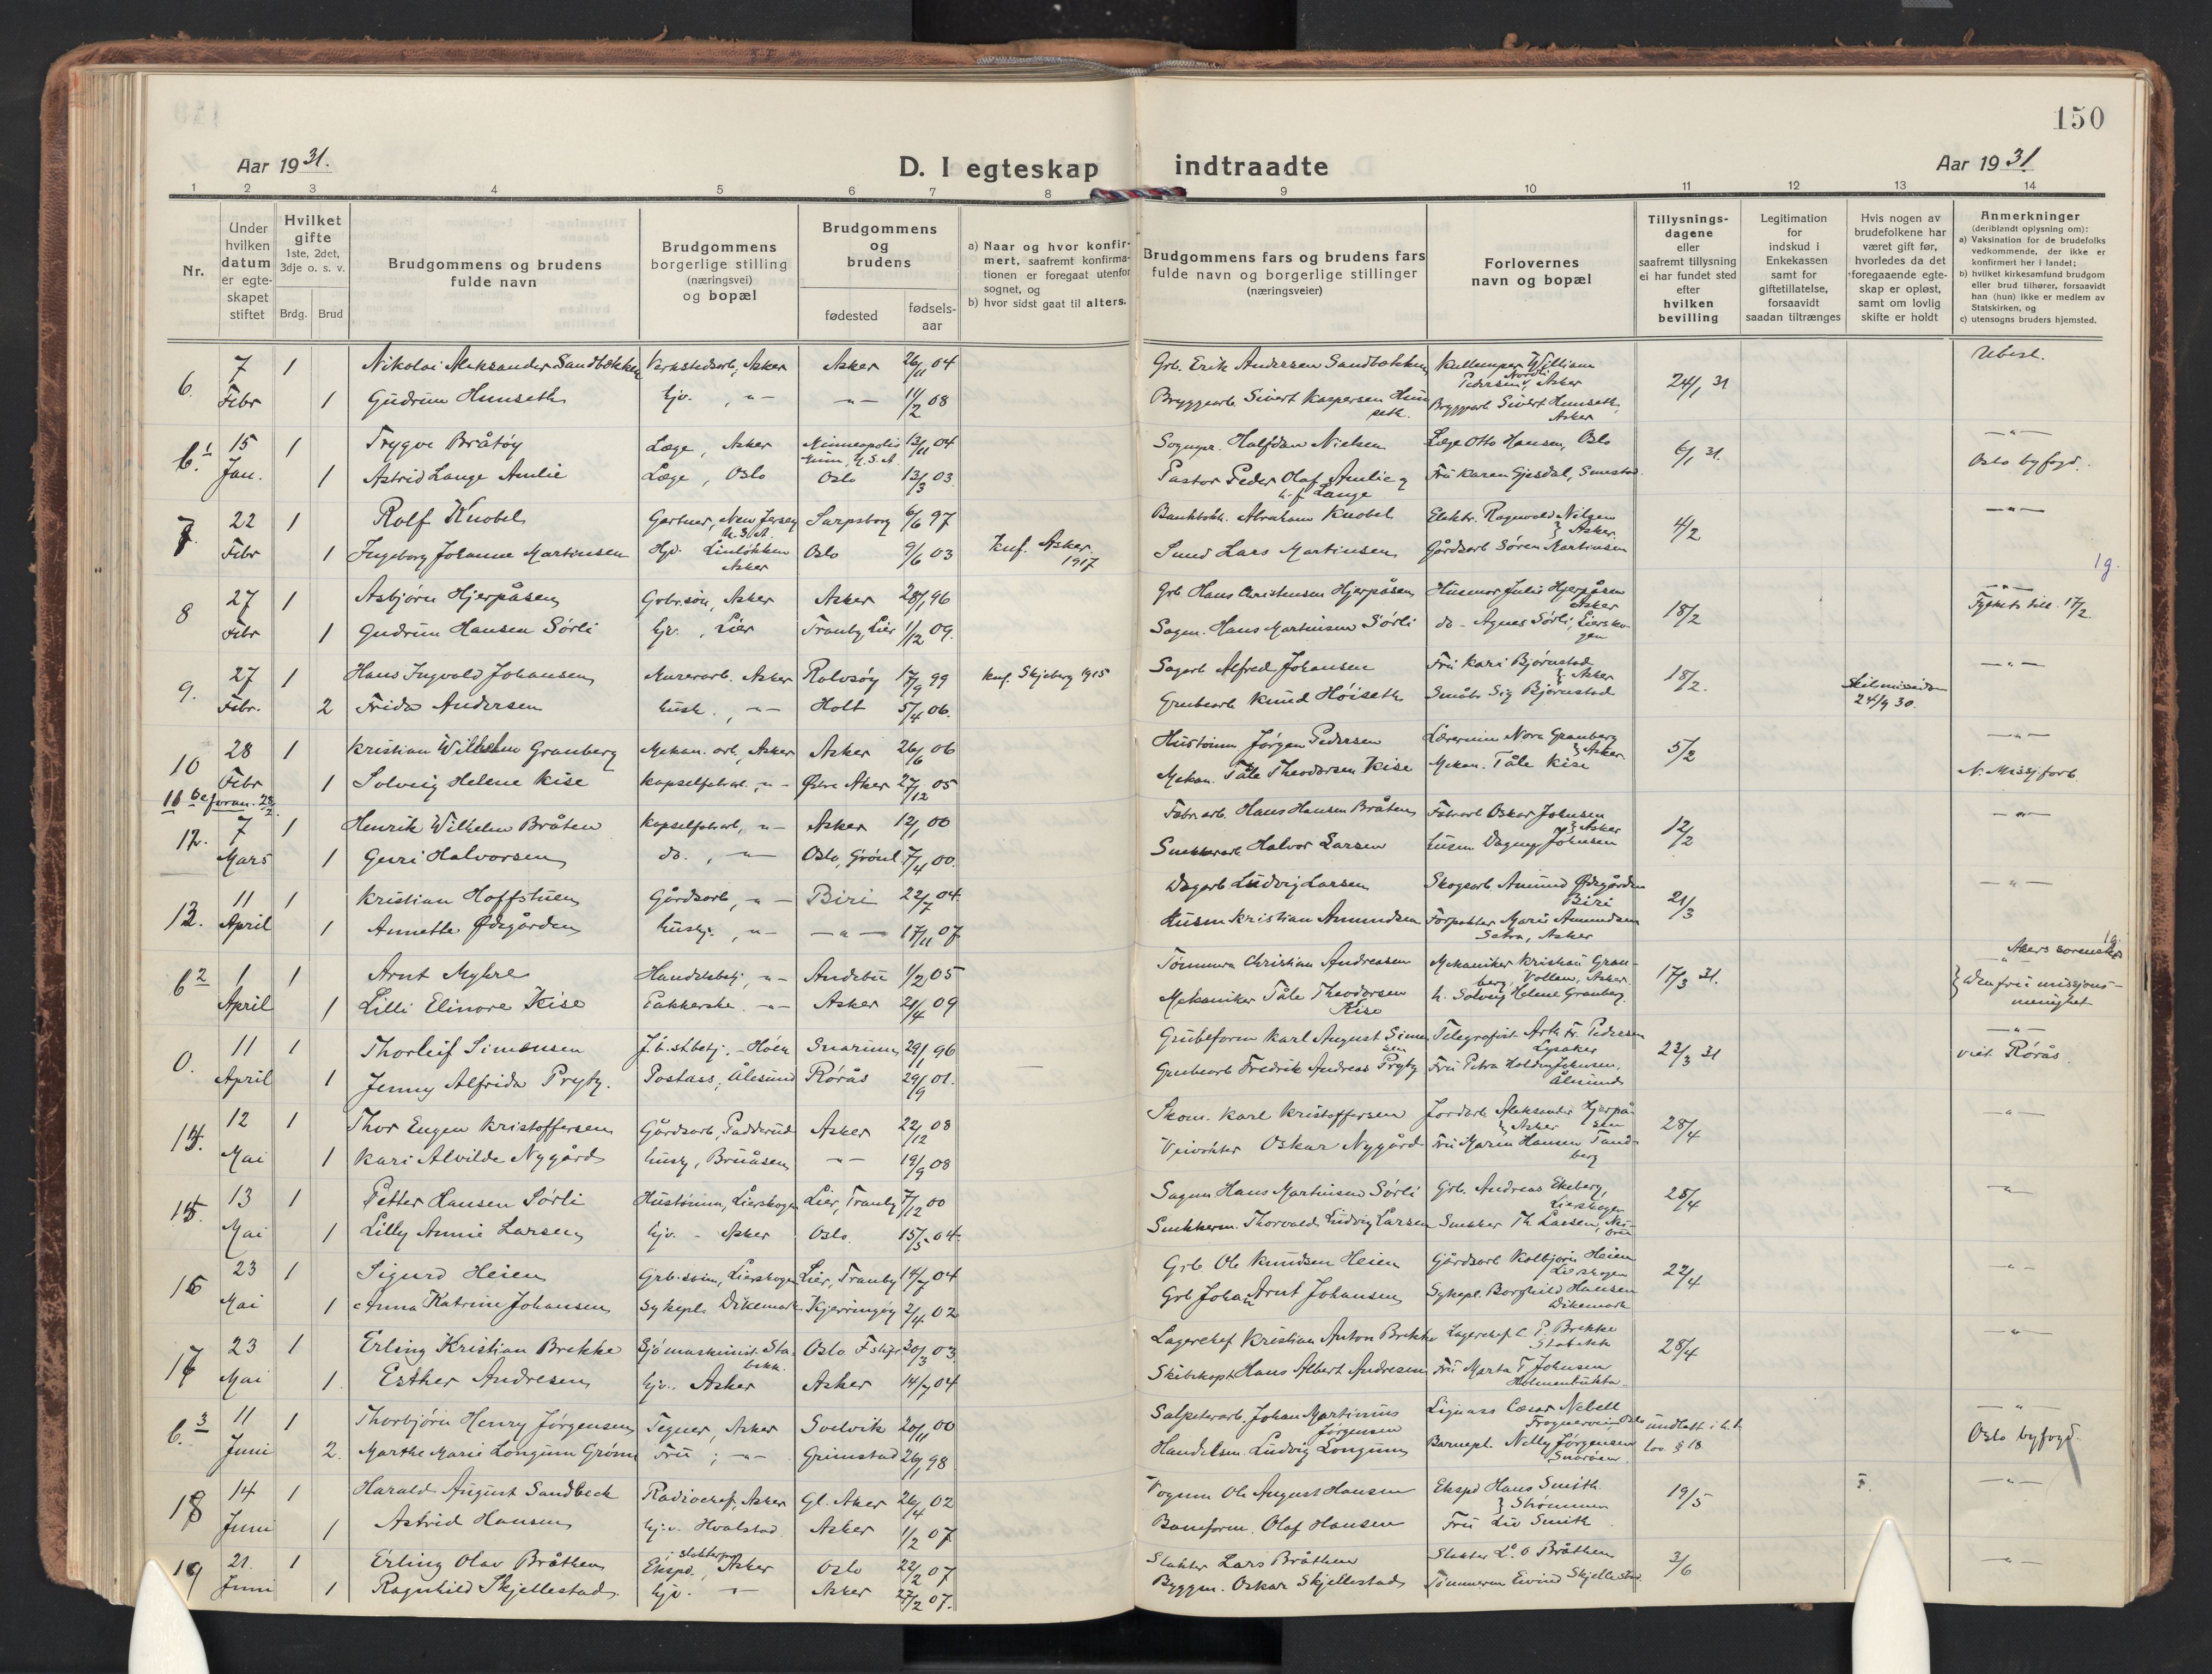 150
Aar 1931.
D. I egteskap indtraadte
Aar 1931
1 2 3 4 5 6 7 8 9 10 11 12 13 14
Nr.
Under hvilken datum er egteskapet stiftet
Hvilket gifte 1ste, 2det, 3dje o. s. v.
Brdg. Brud
Brudgommens og brudens fulde navn
Brudgommens borgerlige stilling (næringsvei) og bopæl
Brudgommens og brudens
fødested
fødsels-aar
a) Naar og hvor konfirmert, saafremt konfirmationen er foregaat utenfor sognet, og
b) hvor sidst gaat til alters.
Brudgommens fars og brudens fars fulde navn og borgerlige stillinger (næringsveier)
Forlovernes navn og bopæl
Tillysningsdagene eller saafremt tillysning ei har fundet sted efter hvilken bevilling
Legitimation for indskud i Enkekassen samt for giftetillatelse, forsaavidt saadan tiltrænges
Hvis nogen av brudefolkene har været gift før, hvorledes da det foregaaende egteskap er opløst, samt om lovlig skifte er holdt
Anmerkninger (deriblandt oplysning om):
a) Vaksination for de brudefolks vedkommende, der ikke er konfirmert her i landet;
b) hvilket kirkesamfund brudgom eller brud tilhører, forsaavidt han (hun) ikke er medlem av Statskirken, og
c) utensogns bruders hjemsted.
6. 7 1 Nikolai Aleksander Sandbækken Verkstedsarb., Asker Asker 26/11 04 Grb. Erik Andersen Sandbækken William Nordli Pedersen, Asker 24/1 31 Ubesl.
Febr 1 Gudrun Hunseth Hjv. , -"- -"- 11/2 08 Bryggearb. Sivert Kaspersen Hunseth. Bryggearb Sivert Hunseth, Asker
6.1 15 1 Trygve Bråtøy Læge, Asker Minneapolis Minn, U.S.A. 13/11 04 Sognepr. Halfdan Nielsen Læge Otto Hansen, Oslo 6/1 31. -"-
Jan. 1 Astrid Lange Amlie Læge, Oslo Oslo 13/3 03. Pastor Peder Olaf Amlie Lange Fru Karen Gjesdal, Smestad Oslo byfogd.
7. 22 1 Rolf Knobel Gartner, New Jersey U.S.A. Sarpsborg 6/6 97 Abraham Knobel Elektr. Ragnvald Nilsen } Asker. 4/2 -"-
Febr 1 Ingeborg Johanne Martinsen Hjv. Linløkken Asker Oslo 9/6 03 Knf. Asker 1917 Smed Lars Martinsen Gårdsarb Søren Martinsen 1g.
8 27 1 Asbjørn Hjerpåsen Gbr.søn, Asker Asker 28/1 96 Grb Hans Christensen Hjerpåsen Husmor Julie Hjerpåsen Asker 18/2 -"-
Febr 1 Gudrun Hansen Sørli Hjv. , Lier Tranby Lier 1/2 09. Sagm. Hans Martinsen Sørli do - Agnes Sørli, Lierskogen Fylkets till. 17/2.
9. 27 1 Hans Ingvald Johansen Murerarb. Asker Rolvsøy 17/9 99 Knf. Skjeberg 1915 Sagarb Alfred Johansen Fru Kari Bjørnstad } Asker 18/2. -"-
Febr. 2 Frida Andersen Hush. , -"- Holt 5/4 06. Grubearb Knud Høiseth Småbr Sig Bjørnstad Skilsmisse 24/9 30.
10 28 1 Kristian Wilhelm Granberg Mekan. arb., Asker Asker 26/6 06 Hustømm Jørgen Pedersen Lærerinne Nora Granberg } Asker 5/2 -"-
Febr 1 Solveig Helene Kise Kapselfabrarb. , -"- Østre Aker 27/12 05 Mekan. Tåle Theodorsen Kise Mekan. Tåle Kise N. Missj.forb.
11 Se foran. 28/2
12. 7 1 Henrik Wilhelm Bråten Kapselfabrarb, -"- Asker 12/1 00 Fabr.arb. Hans Hansen Bråten Fabrarb Oskar Johnsen } Asker 12/2 -"-
Mars 1 Guri Halvorsen do. , -"- Oslo, Grønl. 7/4 00. Snekkerarb Halvor Larsen Husm Dagny Johnsen
13. 11 1 Kristian Hoffstuen Gårdsarb, -"- Biri 22/7 04. Dagarb Ludvig Larsen Skogsarb. Amund Ødegården Biri 21/3 -"-
April 1 Annette Ødegården Hushj. , -"- -"- 17/11 07 Husm Kristian Amundsen Forpakter Marie Amundsen Setra, Asker
6.2 1 1 Arnt Myhre Handelsbetj, -"- Andebu 1/2 05 Tømmerm Christian Andreasen Mekaniker Kristian Granberg, Vollen, Asker. 17/3 31. Akers sorenskr. 1g.
April 1 Lilli Elinore Kise Pakkerske. -"- Asker 21/4 09 Mekaniker Tåle Theodorsen Kise h. Solveig Helene Granberg. } Den frie missjonsmenighet
0. 11 1 Thorleif Simonsen J.b.st.betj. - Høen Snarum 29/1 96 Grubeform Karl August Simensen Telegrafist Arth. Fr. Pedersen Lysaker 23/3 31 -"-
April 1 Jenny Alfrida Prytz. Postass, Ålesund Rørås 29/9 01. Grubearb Fredrik Andreas Prytz Fru Petra Holden Johnsen, Ålesund viet Rørås.
14. 12 1 Thor Eugen Kristoffersen Gårdsarb, Padderud Asker 22/12 08 Skom. Karl Kristoffersen Jordarb Aleksander Hjerpåsen } Asker 28/4 -"-
Mai 1 Kari Alvilde Nygård Hushj, Bruåsen -"- 19/9 08 Veivokter Oskar Nygård Fru Maren Hansen Tandberg
15. 13 1 Petter Hansen Sørli Hustømm, Lierskogen Lier, Tranby 7/12 00 Sagm Hans Martinsen Sørli Grb. Andreas Ekeberg, Lierskogen 25/4 -"-
Mai 1 Lilly Annie Larsen Hjv. - Asker Oslo. 15/5 04. Snekkerm. Thorvald Ludvig Larsen Snekker Th. Larsen,
16 23 1 Sigurd Heien Grb.sønn, Lierskogen Lier, Tranby 14/7 04 Grb. Ole Knudsen Heien Gårdsarb Kolbjørn Heien Lierskogen 22/4 -"-
Mai 1 Anna Katrine Johansen Sykepl. Dikemark Kjerringøy 2/4 02 Grb Johan Arnt Johansen Sykepl. Borghild Hansen Dikemark
17 23 1 Erling Kristian Brekke Sjømaskinist. Stabekk. Oslo F 30/3 03. Lagerchef Kristian Anton Brekke Lagerchef C. P. Brekke Stabekk 28/4 -"-
Mai 1 Esther Andresen Hjv. Asker Asker 14/7 04 Skibskapt Hans Albert Andresen Fru Marta T. Johnsen Holmenbukta
6.3 11 1 Thorbjørn Henry Jørgensen Tegner, Asker Svelvik 20/11 00 Salpeterarb. Johan Martinius Jørgensen Cæsar Nebell Frognerveien, Oslo undlatt i h.t. -"-
Juni 2. Marthe Marie Longum Grøm Fru ; -"- Grimstad 26/1 98 Handelsm. Ludvig Longum Barnepl. Nelly Jørgensen Snarøen lov. § 18 Oslo byfogd.
18 14 1 Harald August Sandbeck Radiochef, Asker Gl. Aker 26/4 02 Vognm Ole August Hansen Ekspd Hans Smith } Strømmen 19/5 F. -"-
Juni 1 Astrid Hansen Hjv. Hvalstad. Asker 1/2 07 Baneform. Olaf Hansen Fru Liv Smith
19 21. 1 Erling Olav Bråthen Ekspd. slakter, Asker Oslo 22/2 07 Slakter Lars Bråthen Slakter L. O Bråthen 3/6 -"-
Juni 1 Ragnhild Skjellestad Hjv. -"- Asker 27/2 07. Byggm. Oskar Skjellestad Tømmerm Eivind Skjellestad